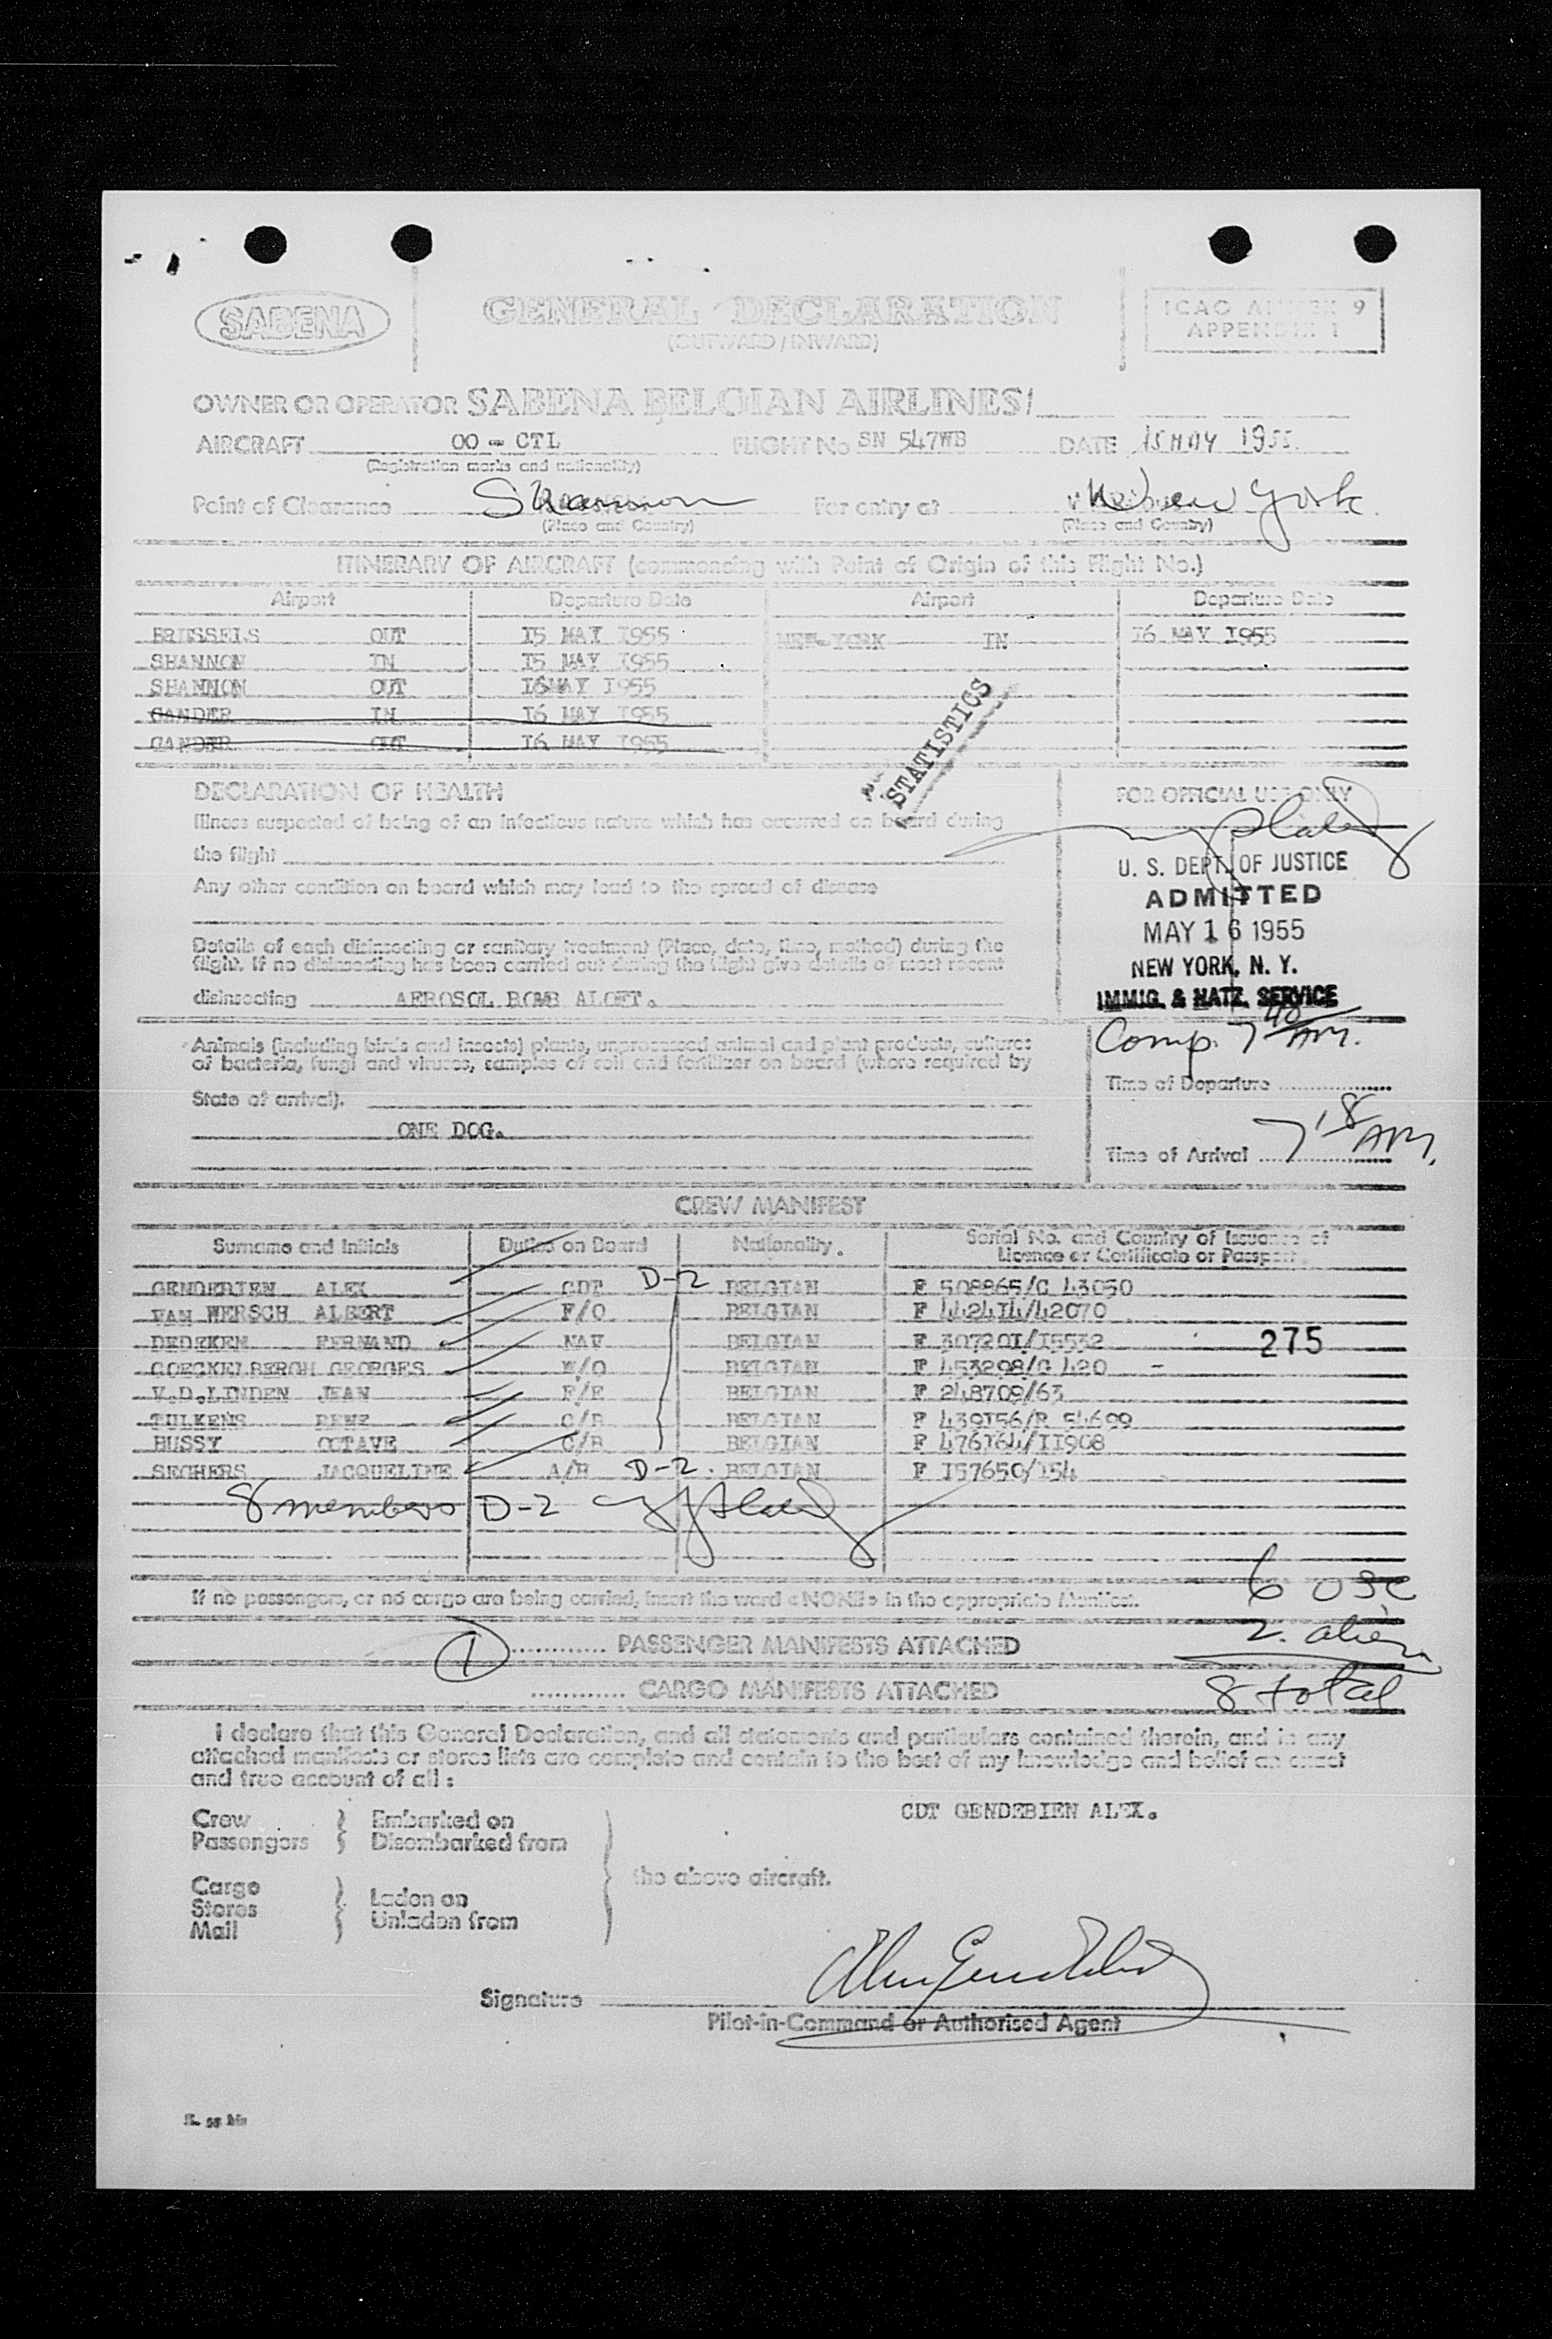 SABENA
GENERAL DECLARATION
(OUTWARD/INWARD)
ICAO ANNEX 9
APPENDIX 1
OWNER OR OPERATOR SABENA BELGIAN AIRLINES/
AIRCRAFT OO - CTL FLIGHT No SN 547WB DATE 15 MAY 1955.
(Registration marks and nationality)
Point of Clearance Shannon For entry at New York.
(Place and Country) (Place and Country)
ITINERARY OF AIRCRAFT (commencing with Point of Origin of this Flight No.)
Airport Departure Date Airport Departure Date
BRUSSELS OUT I5 MAY I955 NEW-YORK IN I6 MAY I955
SHANNON IN I5 MAY I955
SHANNON OUT I6MAY I955
GANDER IN I6 MAY I955
GANDER OUT I6 MAY I955
STATISTICS
DECLARATION OF HEALTH
Illness suspected of being of an infectious nature which has occurred on board during
the flight
Any other condition on board which may lead to the spread of disease
Details of each disinsecting or sanitary treatment (Place, date, time, method) during the
flight. If no disinsecting has been carried out during the flight give details of most recent
disinsecting AEROSOL BOMB ALOFT.
FOR OFFICIAL USE ONLY
U. S. DEPT. OF JUSTICE
ADMITTED
MAY 16 1955
NEW YORK, N. Y.
IMMIG. & NATZ. SERVICE
Comp. 7 40 AM.
Animals (including birds and insects) plants, unprocessed animal and plant products, cultures
of bacteria, fungi and viruses, samples of soil and fertilizer on board (where required by
State of arrival).
ONE DOG.
Time of Departure
Time of Arrival 7 18 AM.
CREW MANIFEST
Surname and Initials Duties on Board Nationality. Serial No. and Country of Issuance of
Licence or Certificate or Passport.
GENDEBIEN ALEX CDT D-2 BELGIAN F 508865/C 43050
VAN WERSCH ALBERT F/O BELGIAN F 4424I4/42070
DEDEKEN FERNAND NAV BELGIAN F 30720I/I5532
275
GOECKELBERGH GEORGES W/O BELGIAN F 453298/C 420
V.D.LINDEN JEAN F/E BELGIAN F 248709/63
TULKENS RENE C/B BELGIAN F 439I56/R 54699
BUSSY OCTAVE C/B BELGIAN F 476I64/II908
SEGHERS JACQUELINE A/H D-2. BELGIAN F I57650/I54
8 members D-2
If no passengers, or no cargo are being carried, insert the word «NONE» in the appropriate Manifest.
6 USC
1 PASSENGER MANIFESTS ATTACHED
2. alien
CARGO MANIFESTS ATTACHED
8 total
I declare that this General Declaration, and all statements and particulars contained therein, and in any
attached manifests or stores lists are complete and contain to the best of my knowledge and belief an exact
and true account of all :
CDT GENDEBIEN ALEX.
Crew Embarked on
Passengers Disembarked from
the above aircraft.
Cargo
Stores Laden on
Mail Unladen from
Signature Alex Gendebien
Pilot-in-Command or Authorised Agent